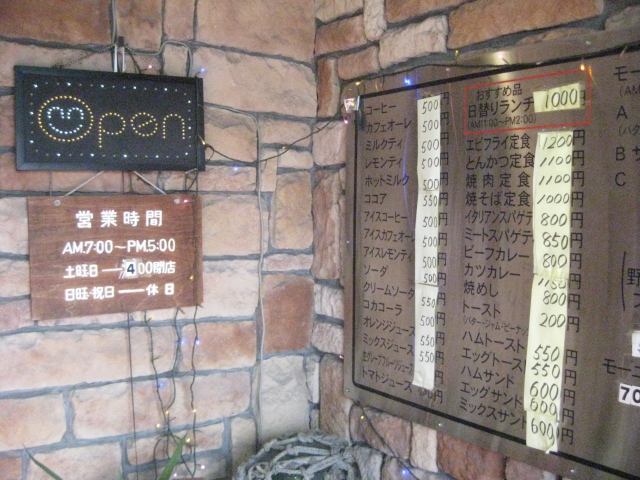 Open
営業時間
AM.7:00～PM.5:00
土曜日―4:00閉店
日曜・祝日―休日
コーヒー 500
カフェオーレ
ミルクティ 500
レモンティ 500
ホットミルク 500
ココア 550
アイスコーヒー 500
アイスカフェオーレ
アイスレモンティ 500
ソーダ 500
クリームソーダ 550
コカコーラ 500
オレンジジュース 550
ミックスジュース 550
生グレープフルーツジュース
トマトジュース
おすすめ品
日替りランチ 1000円
(AM11:00～PM2:00)
エビフライ定食 1200円
とんかつ定食 1100円
焼肉定食 1100円
焼そば定食 1000円
イタリアンスパゲティ 800円
ミートスパゲティ 850円
ビーフカレー 800円
カツカレー 円
焼めし 800円
トースト 200円
(バター・ジャム・ピーナツ)
ハムトースト 550円
エッグトースト 550円
ハムサンド 600円
エッグサンド 600円
ミックスサンド 600円
モー
(AM
A
B サ
C
野
モーニ
70